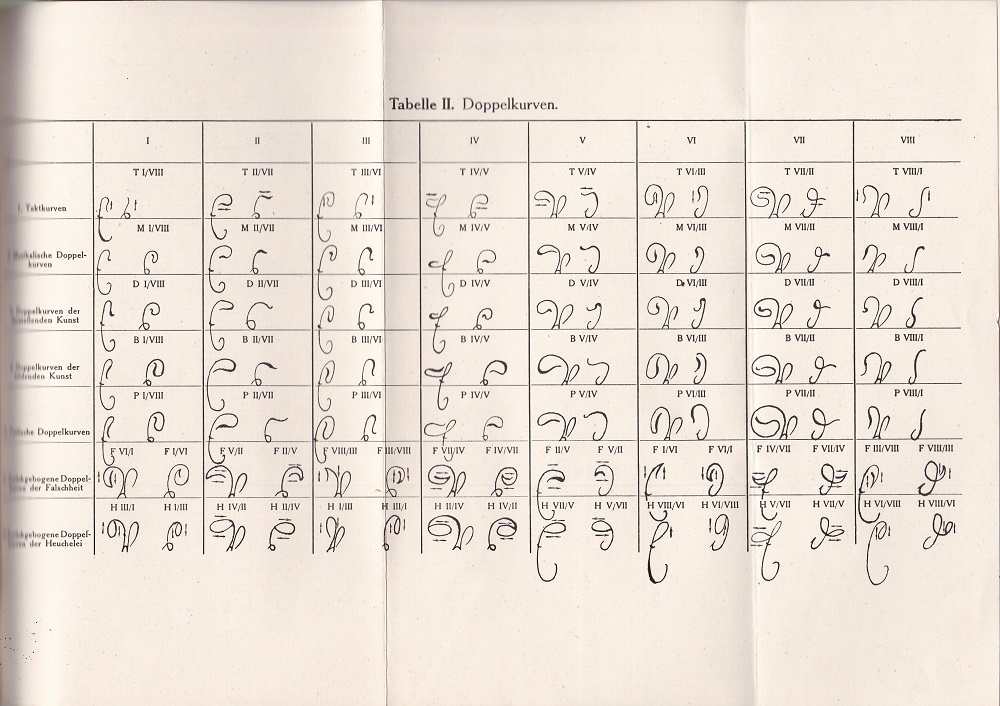 Tabelle II. Doppelkurven.
I II III IV V VI VII VIII
T I/VIII T II/VII T III/VI T IV/V T V/IV T VI/III T VII/II T VIII/I
Taktkurven
M I/VIII M II/VII M III/VI M IV/V M V/IV M VI/III M VII/II M VIII/I
Doppel-
kurven
D I/VIII D II/VII D III/VI D IV/V D V/IV D VI/III D VII/II D VIII/I
Doppelkurven der
Kunst
B I/VIII B II/VII B III/VI B IV/V B V/IV B VI/III B VII/II B VIII/I
Doppelkurven der
Kunst
P I/VIII P II/VII P III/VI P IV/V P V/IV P VI/III P VII/II P VIII/I
Doppelkurven
F VI/I F I/VI F V/II F II/V F VIII/III F III/VIII F VII/IV F IV/VII F II/V F V/II F I/VI F VI/I F IV/VII F VII/IV F III/VIII F VIII/III
Doppel-
der Falschheit
H III/I H I/III H IV/II H II/IV H I/III H III/I H II/IV H IV/II H VII/V H V/VII H VIII/VI H VI/VIII H V/VII H VII/V H VI/VIII H VIII/VI
Doppel-
der Heuchelei